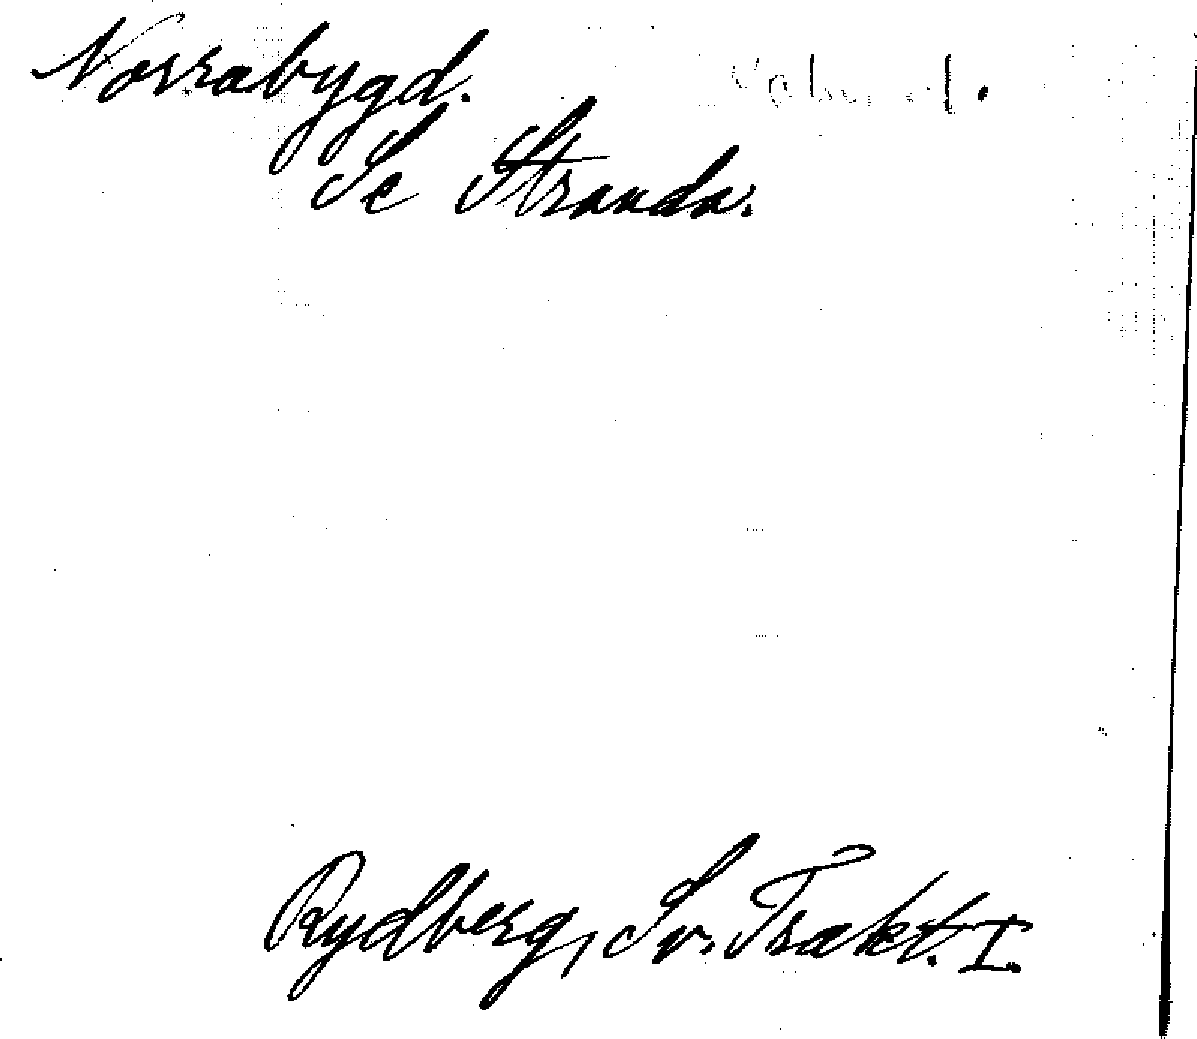 Norrabygd.
Se Stranda.
Rydberg, Sv. Trakt. I.